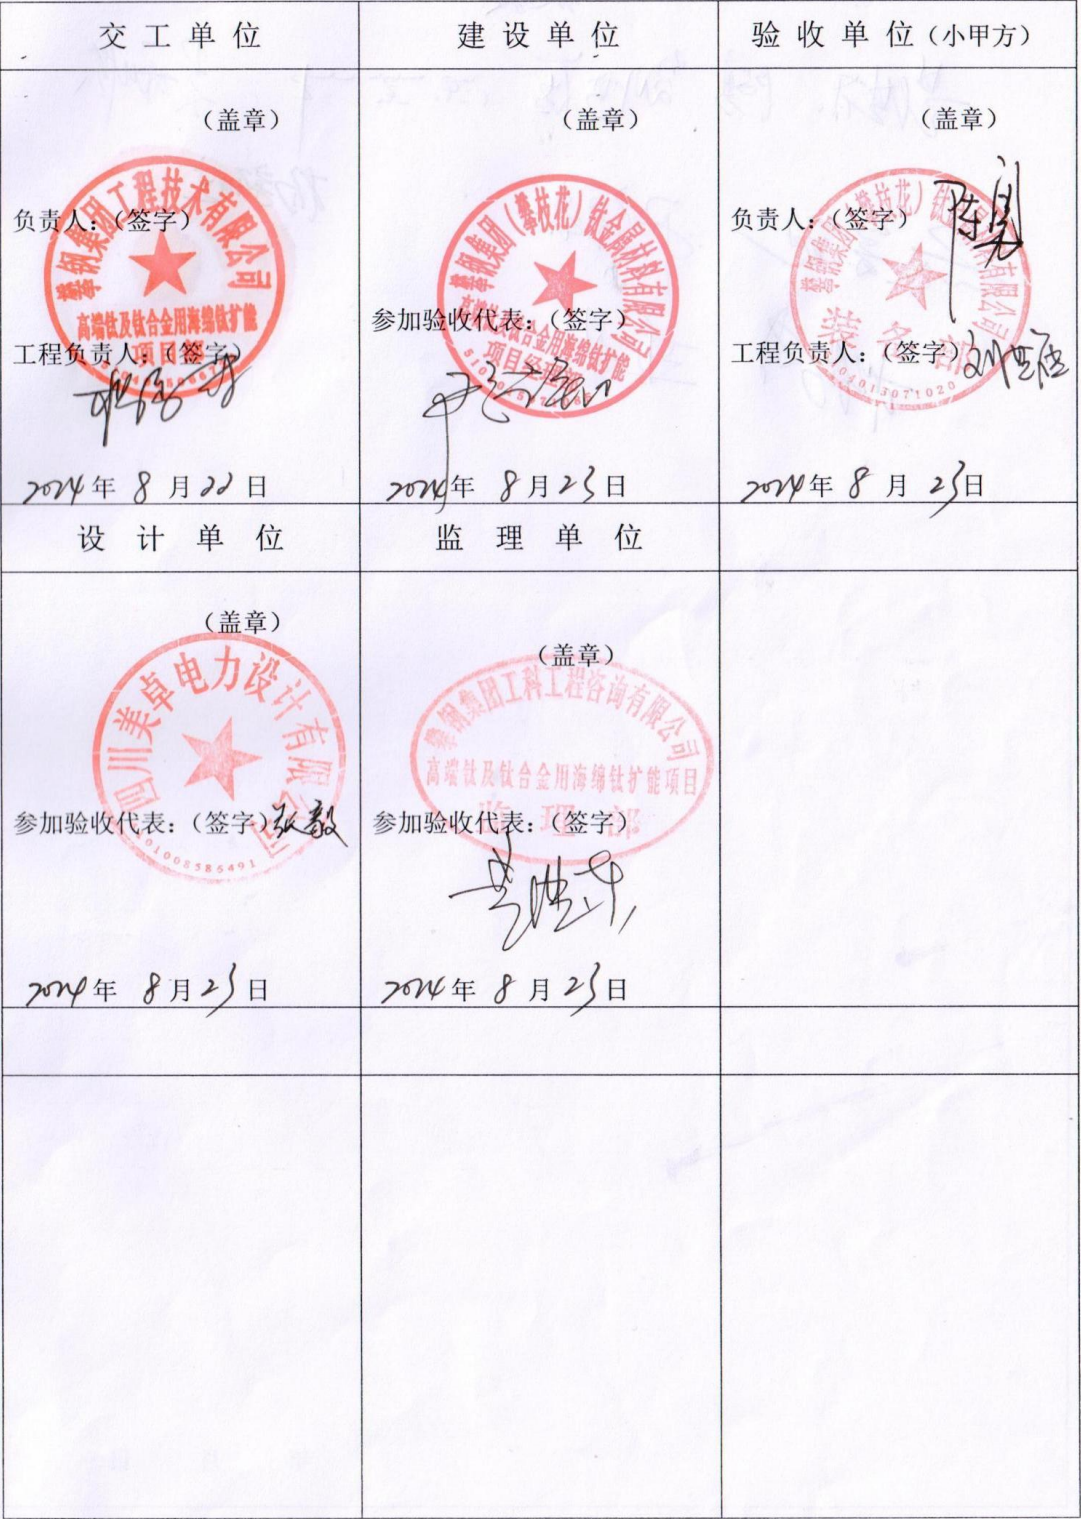 交工单位
建设单位
验收单位(小甲方)
(盖章)
(盖章)
(盖章)
攀钢集团工程技术有限公司
高端钛及钛合金用海绵钛扩能
项目部
负责人:(签字)
工程负责人:(签字)
2024年 8月22日
攀钢集团(攀枝花)钛金属材料有限公司
高端钛及钛合金用海绵钛扩能
项目经理部
参加验收代表:(签字)
2024年 8月23日
攀钢集团(攀枝花)钛金属材料有限公司
装备部
负责人:(签字) 陈勇
工程负责人:(签字)
2024年 8月 23日
设计单位
监理单位
(盖章)
(盖章)
四川美卓电力设计有限公司
参加验收代表:(签字) 张毅
2024年 8月23日
攀钢集团工科工程咨询有限公司
高端钛及钛合金用海绵钛扩能项目
监理部
参加验收代表:(签字)
2024年 8月23日